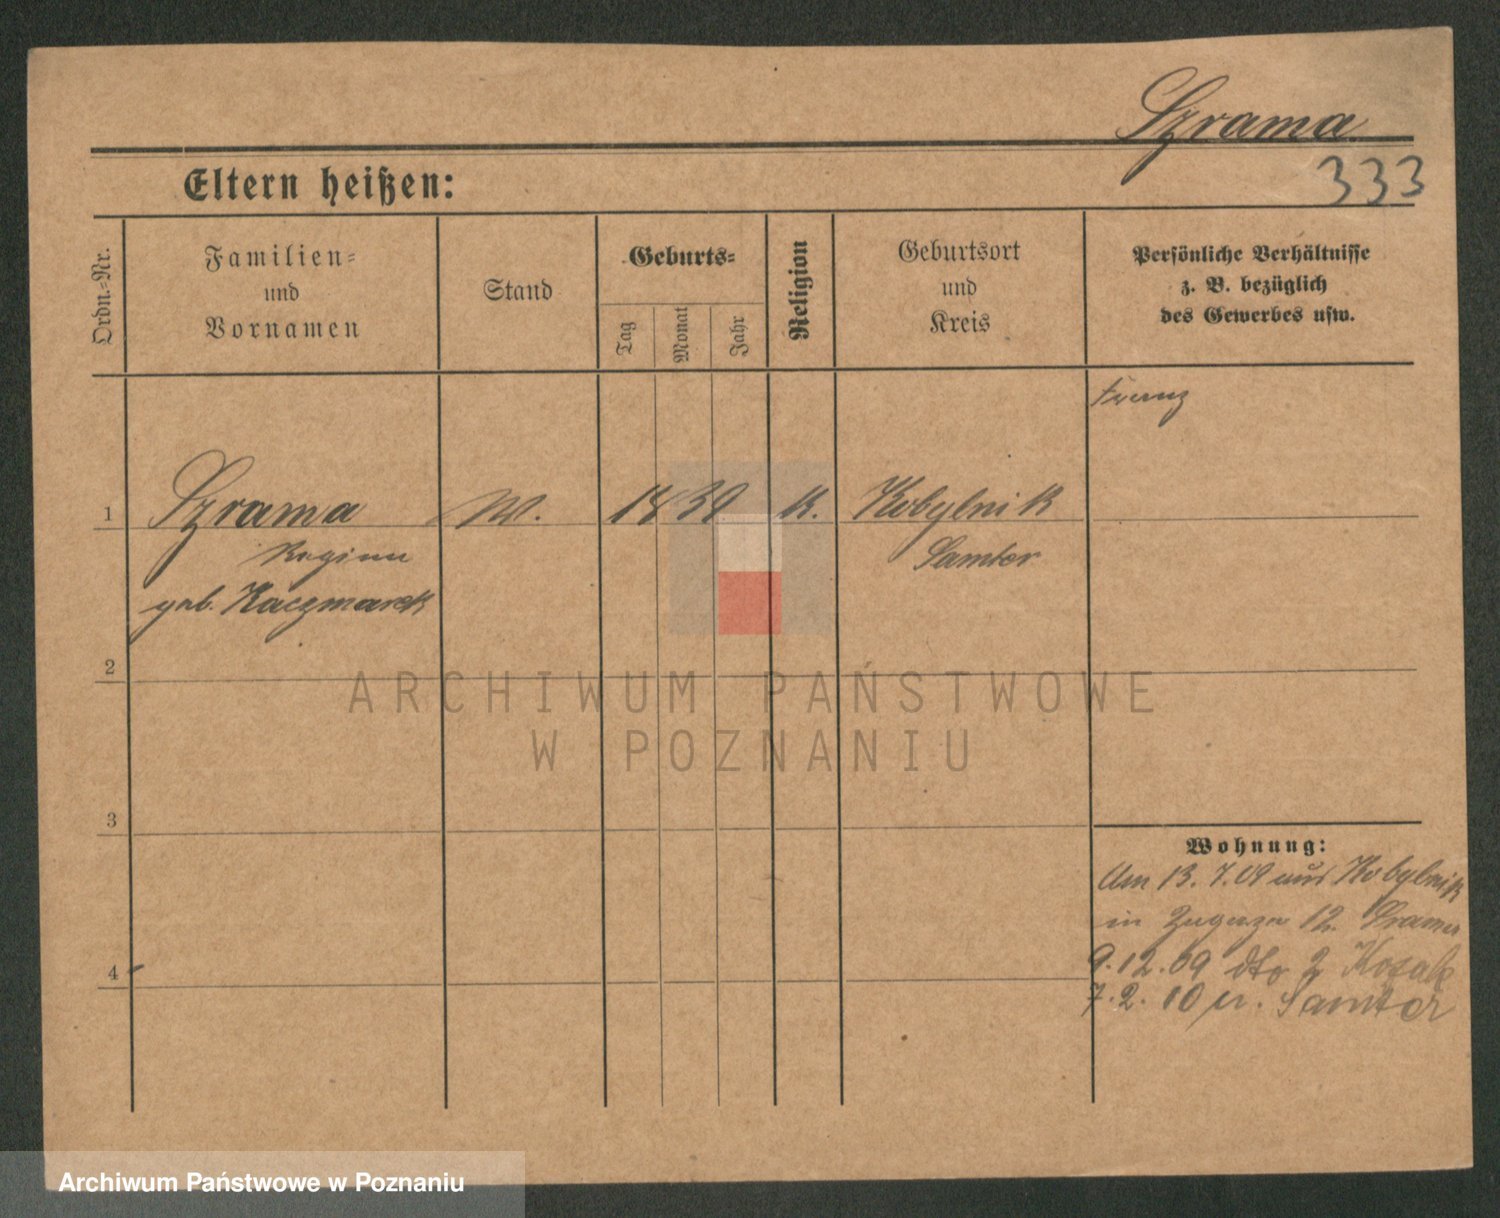 Szrama
333
Eltern heißen:
Ordn.-Nr.
Familien-
und
Vornamen
Stand
Geburts-
Tag
Monat
Jahr
Religion
Geburtsort
und
Kreis
Persönliche Verhältnisse
z. B. bezüglich
des Gewerbes usw.
Franz
1 Szrama W. 1839 K. Kobylnik
Regina Samter
geb. Kaczmarek
2
3
4
Wohnung:
Am 13. 7. 09 aus Kobylnik
in 12. Srama
9. 12. 09 dto 2 Kozak
7. 2. 10 n. Samter
ARCHIWUM PAŃSTWOWE
W POZNANIU
Archiwum Państwowe w Poznaniu